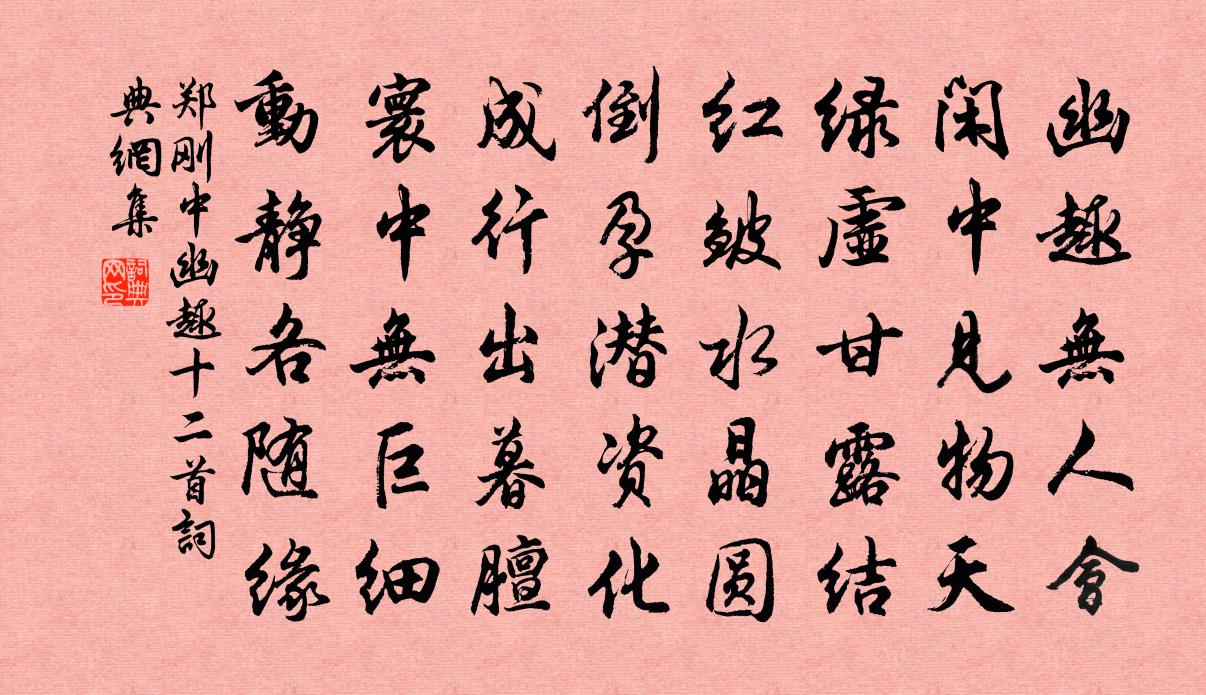 幽趣無人會
閑中見物天
绿虚甘露結
红皴水晶圆
倒孕潜资化
成行出暮膻
寰中無巨细
動静各随缘
郑刚中幽趣十二首詞
典網集
詞典
网印